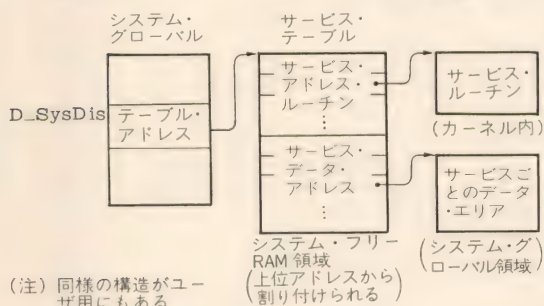 システム・
グローバル
D_SysDis
テーブル・
アドレス
サービス・
テーブル
サービス・
アドレス・
ルーチン
⋮
サービス・
データ・
アドレス
⋮
システム・フリー
RAM 領域
(上位アドレスから
割り付けられる)
サービス・
ルーチン
(カーネル内)
サービスご
とのデータ
・エリア
(システム・グ
ローバル領域)
(注) 同様の構造がユー
ザ用にもある